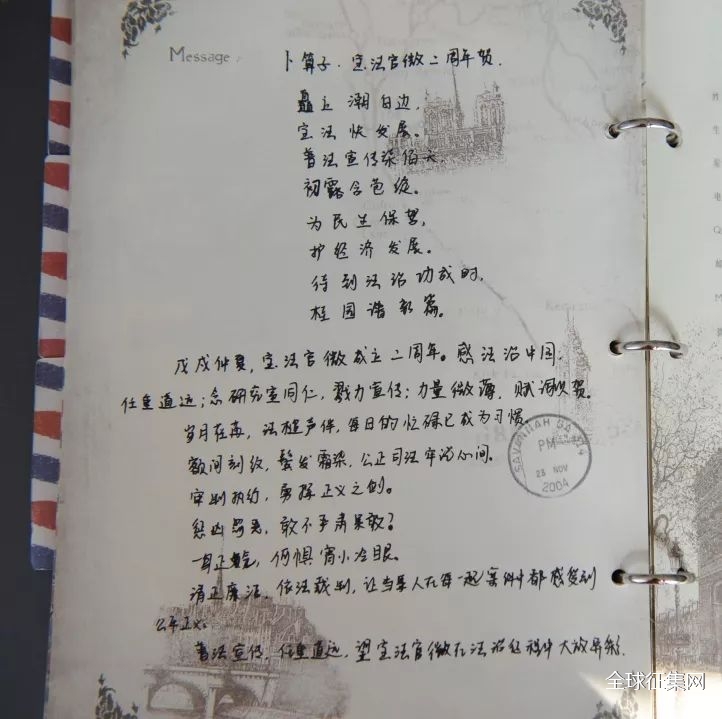 Message:
卜算子·宝法官微二周年贺.
矗立潮白边,
宝法快发展。
普法宣传深佰天,
初露含苞绽。
为民生保驾,
护经济发展。
待到法治功成时,
桂园谱新篇。
戊戌仲夏,宝法官微成立二周年。感法治中国,
任重道远;念研究室同仁,戮力宣传;力量微薄,赋词以贺。
岁月荏苒,法槌声伴,每日的忙碌已成为习惯。
额间刻纹,鬓发霜染,公正司法牢记心间。
审判执行,勇挥正义之剑。
惩凶罚恶,敢不手肃果敢?
一身正, 何惧宵小冷眼。
清正廉洁,依法裁判,让当事人在每一起案件中都感受到
公平正义。
普法宣传,任重道远,望宝法官微在法治征程中大放异彩.
SAVANNAH
PM
23 NOV
2004
全球征集网